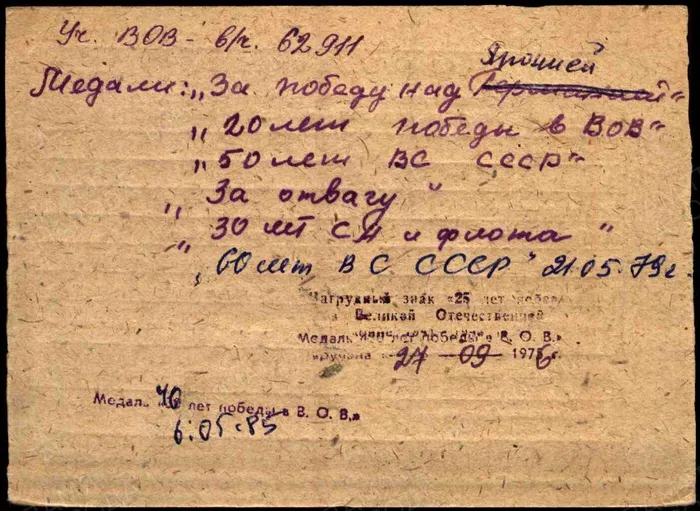 Уч. ВОВ - в/ч. 62911
Японией
Медали: „За победу над Германией"
„20 лет победы в ВОВ"
„50 лет ВС СССР"
„За отвагу"
„30 лет СА и флота"
„60 лет ВС СССР" 21.05.79г.
Нагрудный знак «25 лет победы
в Великой Отечественной
Медаль лет победы в В. О. В.»
вручена 27 - 09 1976 г.
Медаль «40 лет победы в В. О. В.»
6.05.85